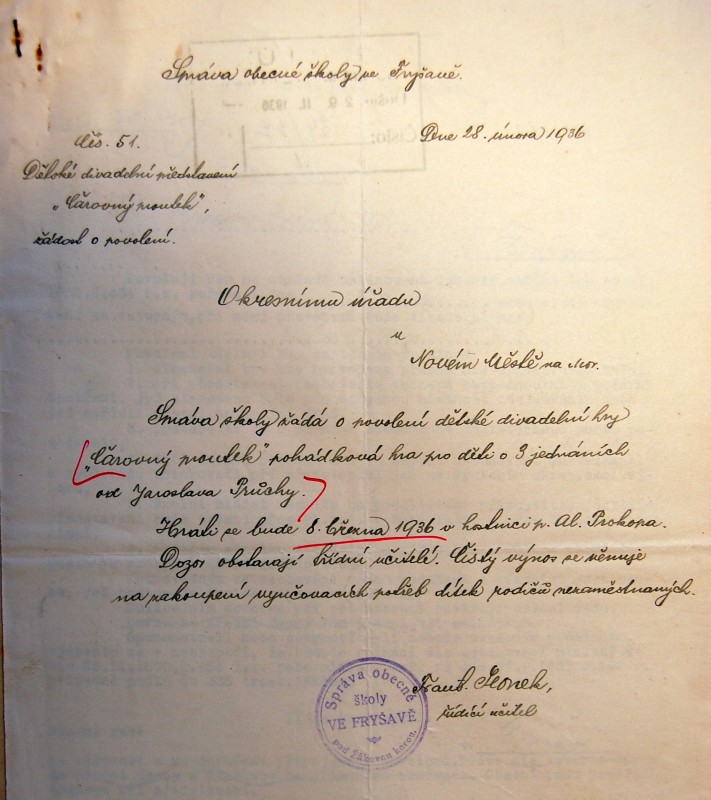 Správa obecné školy ve Fryšavě.
Dne 28. února 1936
Čís. 51.
Dětské divadelní představení
„Čarovný proutek“,
žádost o povolení.
Okresnímu úřadu
v
Novém Městě na Mor.
Správa školy žádá o povolení dětské divadelní hry
„Čarovný proutek“ pohádková hra pro děti o 3 jednáních
od Jaroslava Průchy.
Hráti se bude 8. března 1936 v hostinci p. Al. Prokopa.
Dozor obstarají třídní učitelé. Čistý výnos se věnuje
na zakoupení vyučovacích potřeb dítek rodičů nezaměstnaných.
Frant.
řídící učitel
Správa obecné
školy
VE FRYŠAVĚ
pod Žákovou horou.